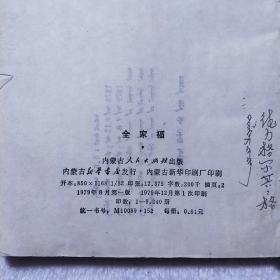 全家福
内蒙古人民出版社出版
内蒙古新华书店发行 内蒙古新华印刷厂印刷
开本:850×1168 1/32 印张:12.375 字数:200千 插页:2
1979年8月第一版 1979年12月第1次印刷
印数:1—9,240册
统一书号:M10089·152 每册:0.81元